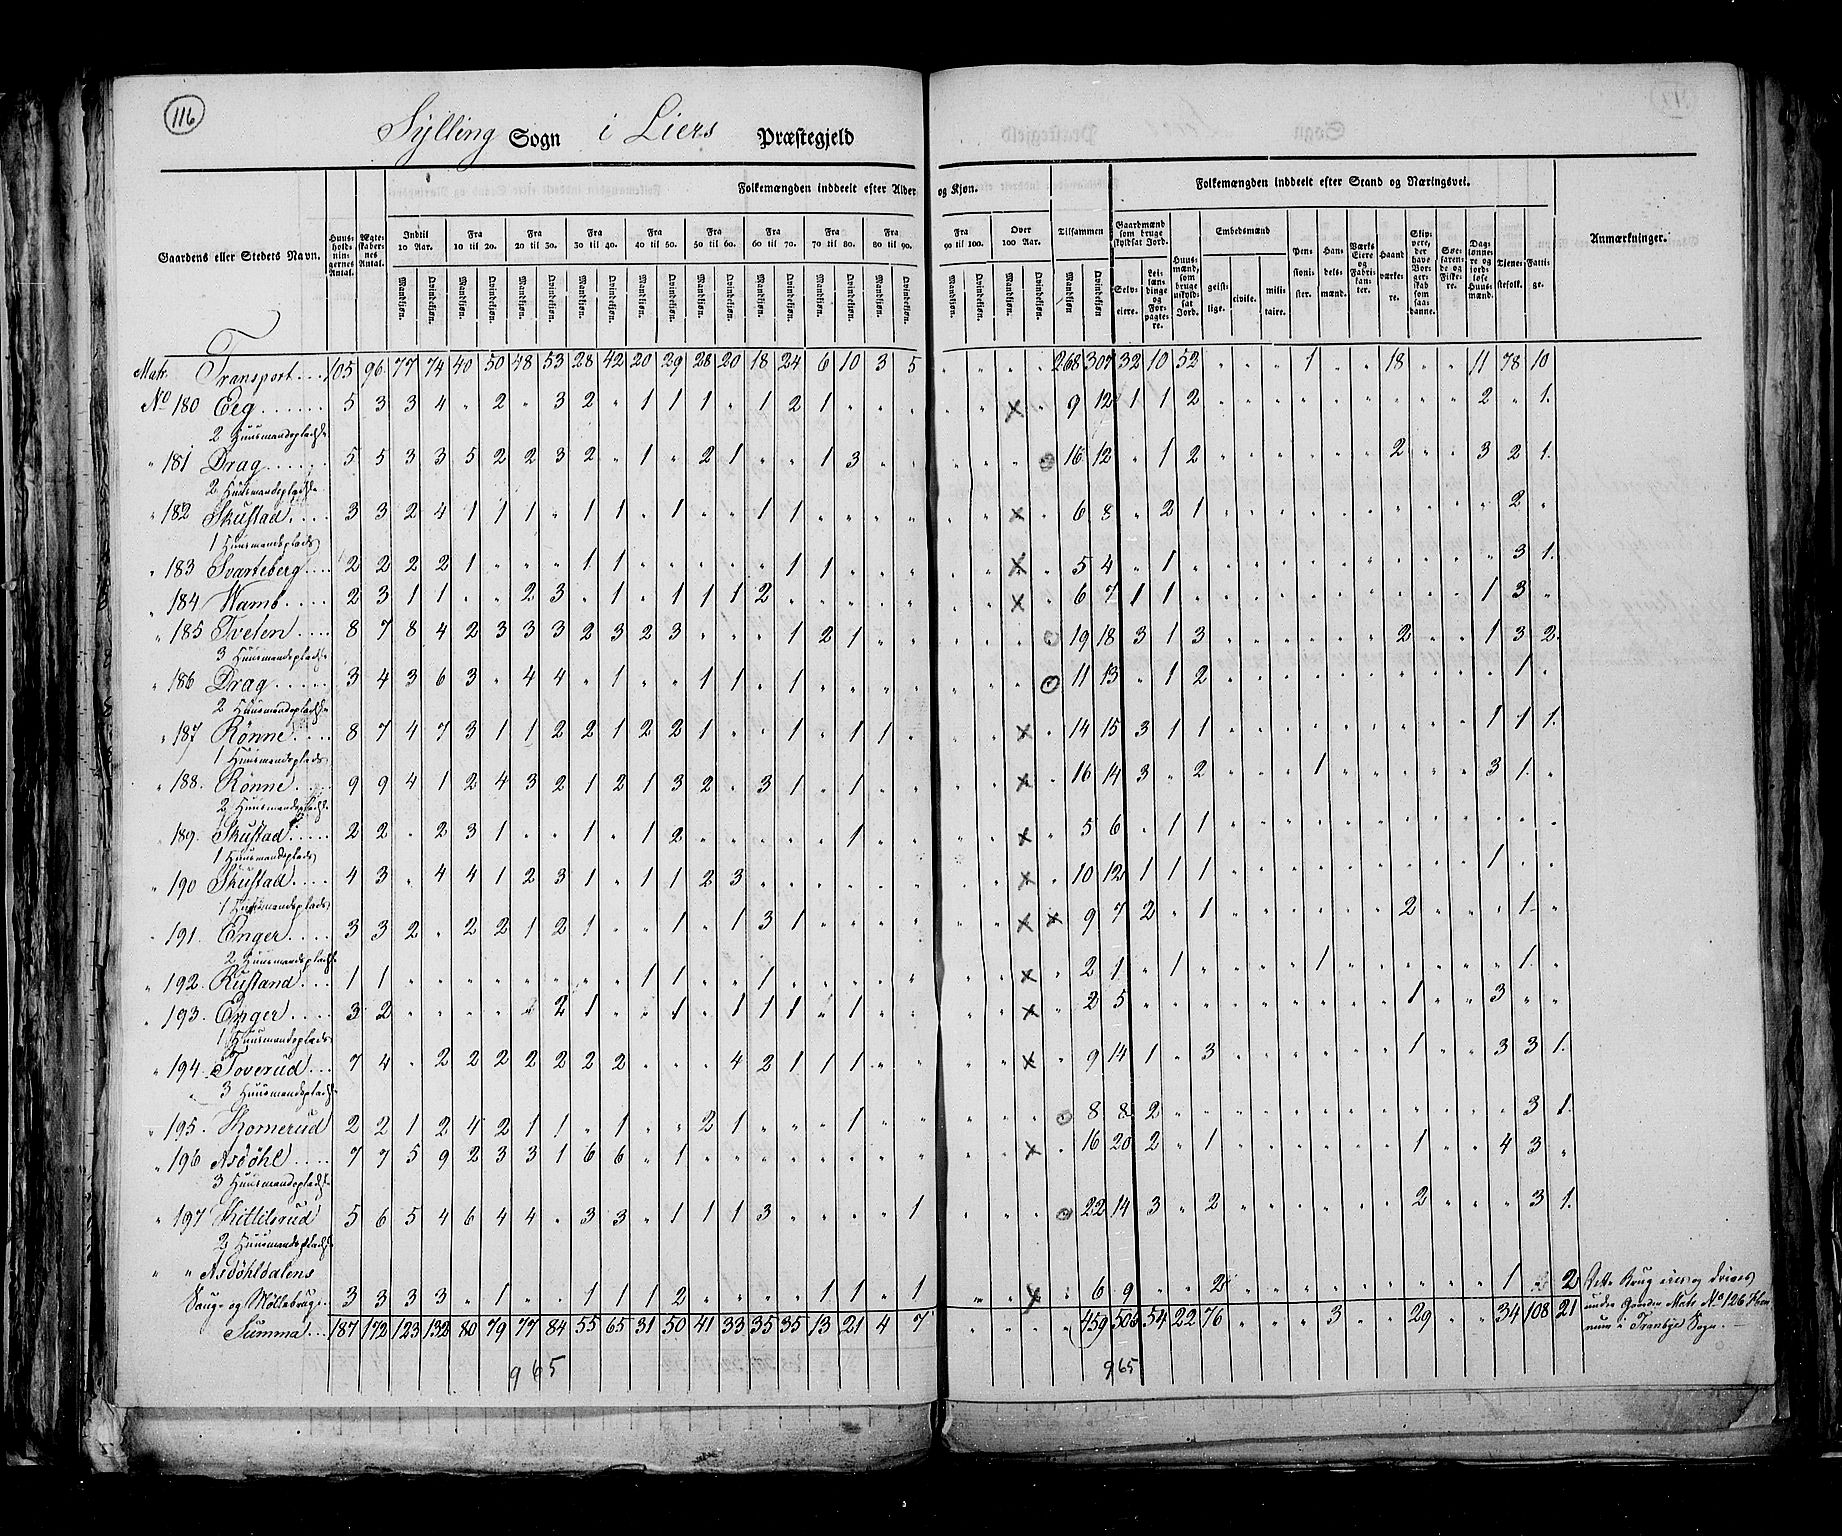 116
Sylling Sogn i Liers Præstegjeld
Gaardens eller Stedets Navn.
Huusholdningernes Antal.
Ægteskabernes Antal.
Folkemængden inddeelt efter Alder og Kjøn.
Indtil 10 Aar. Fra 10 til 20. Fra 20 til 30. Fra 30 til 40. Fra 40 til 50. Fra 50 til 60. Fra 60 til 70. Fra 70 til 80. Fra 80 til 90. Fra 90 til 100. Over 100 Aar. Tilsammen
Mandkjøn. Qvindekjøn. Mandkjøn. Qvindekjøn. Mandkjøn. Qvindekjøn. Mandkjøn. Qvindekjøn. Mandkjøn. Qvindekjøn. Mandkjøn. Qvindekjøn. Mandkjøn. Qvindekjøn. Mandkjøn. Qvindekjøn. Mandkjøn. Qvindekjøn. Mandkjøn. Qvindekjøn. Mandkjøn. Qvindekjøn. Mandkjøn Qvindekjøn
Folkemængden inddeelt efter Stand og Næringsvei.
Gaardmænd som bruge skyldsat Jord.
Selveiere.
Leilændinge og Forpagtere.
Huusmænd, som bruge uskyldsat Jord.
Embedsmænd
geistlige. civile. militaire.
Pensionister.
Handelsmænd.
Værks Eiere og Fabrikanter.
Haandværkere.
Søefarende og Fiskere.
Daglønnere og jordløse Huusmænd.
Tjenestefolk.
Fattige.
Anmærkninger.
Matr. Transport... 105 96 77 74 40 50 48 53 28 42 20 29 28 20 18 24 6 10 3 5 " " " " 268 307 32 10 52 " " " 1 " " 18 " " 11 78 10
No 180 Eeg...... 5 3 3 4 " 2 " 3 2 " 1 1 1 " 1 2 1 " " " " " x " 9 12 1 1 2 " " " " " " " " " 2 " 1.
2 Huusmandspladse
" 181 Drag...... 5 5 3 3 5 2 2 3 2 " 1 " 2 1 " " 1 3 " " 16 12 " 1 2 " " " " " " 2 " " 3 2 1.
2 Huusmandspladse
" 182 Skustad.... 3 3 2 4 1 1 1 " 1 1 " 1 " " 1 1 " " " " " " x " 6 8 " 2 1 " " " " " " " " " " 2 "
1 Huusmandsplads
" 183 Svarteberg.... 2 2 2 2 1 " " " 1 1 " " " " " 1 1 " " " " " x " 5 4 " 1 " " " " " " " " " " " 3 1.
" 184 Wamb..... 2 3 1 1 " " 2 3 " 1 " 1 1 1 2 " " " " " " " x " 6 7 1 1 " " " " " " " " " " 1 3 "
" 185 Tveten.... 8 7 8 4 2 3 3 3 2 3 2 3 " " " 1 2 1 " " 19 18 3 1 3 " " " " " " 2 " " 1 3 2.
3 Huusmandspladse
" 186 Drag...... 3 4 3 6 3 " 4 4 " 1 " " 1 1 " 1 " " " " 11 13 " 1 2 " " " " " " " " " " 1 "
2 Huusmandspladse
" 187 Rönne.... 8 7 4 7 3 1 1 2 2 1 2 2 1 " " 1 " 1 1 " " " x " 14 15 3 1 1 " " " " " " " " " 1 1 1.
1 Huusmandsplads
" 188. Rönne.... 9 9 4 1 2 4 3 2 1 2 1 3 2 " 3 1 " 1 " " " " x " 16 14 3 " 2 " " " " 1 " " " " " 3 1. "
2 Huusmandspladse
" 189. Skustad.... 2 2 " 2 3 1 " " 1 " 1 2 " " " " " 1 " " " " x " 5 6 " 1 1 " " " " " " " " " " " "
1 Huusmandsplads
" 190 Skustad.... 4 3 " 4 4 1 2 3 1 " 1 1 2 3 " " " " " " " " x " 10 12 1 1 1 " " " " " " " " " 1 " "
1 Huusmandsplads
" 191. Enger..... 3 3 2 " 2 2 1 2 1 " " 1 " 1 3 1 " " " " " " x x 9 7 2 " 1 " " " " " " 2 " " " 1 "
2 Huusmandspladse
" 192. Rustand... 1 1 " " " " " " " " 1 1 " " 1 " " " " " " " x " 2 1 " 1 " " " " 1 " " " " " " 1. "
" 193. Enger..... 3 2 " " " " " 2 1 " " 1 " 1 1 1 " 1 " " " " x " 2 5 " " " " " " " " " 1 " " 3 " "
1 Huusmandsplads
" 194. Toverud... 7 4 " 2 2 2 2 2 2 2 " " " 4 2 1 1 1 " " " " x " 9 14 1 " 3 " " " " " " 1 " " 3 3 1.
3 Huusmandspladse
" 195. Homerud 2 2 1 2 4 2 1 1 " 1 " " 2 1 " " " 1 " " 8 8 2 " " " " " " " " " " " " 3 1.
" 196 Asdöhl.... 7 7 5 9 2 3 3 1 6 6 " 1 " " " " " " " " " " x " 16 20 2 " 1 " " " " " " 1 " " 4 3 "
3 Huusmandspladse
" 197 Kittilsrud 5 6 5 4 6 4 4 " 3 3 " 1 1 1 3 " " " " 1 22 14 3 " 2 " " " " " " 2 " " " 3 1.
2 Huusmandspladse
" " Asdöhldalens
Saug- og Möllebrug.. 3 3 3 3 " 1 " " 1 1 1 2 " " " " 1 1 " 1 " " x " 6 9 " " 2 " " " " " " " " " 1 " 2
Summa... 187 172 123 132 80 79 77 84 55 65 31 50 41 33 35 35 13 21 4 7 " " " " 459 506 54 22 76 " " " " 3 " 29 " " 34 108 21
Dette Brug eies og drives
under Gaarden Matr. No 126
i Tranbye Sogn.
965
965